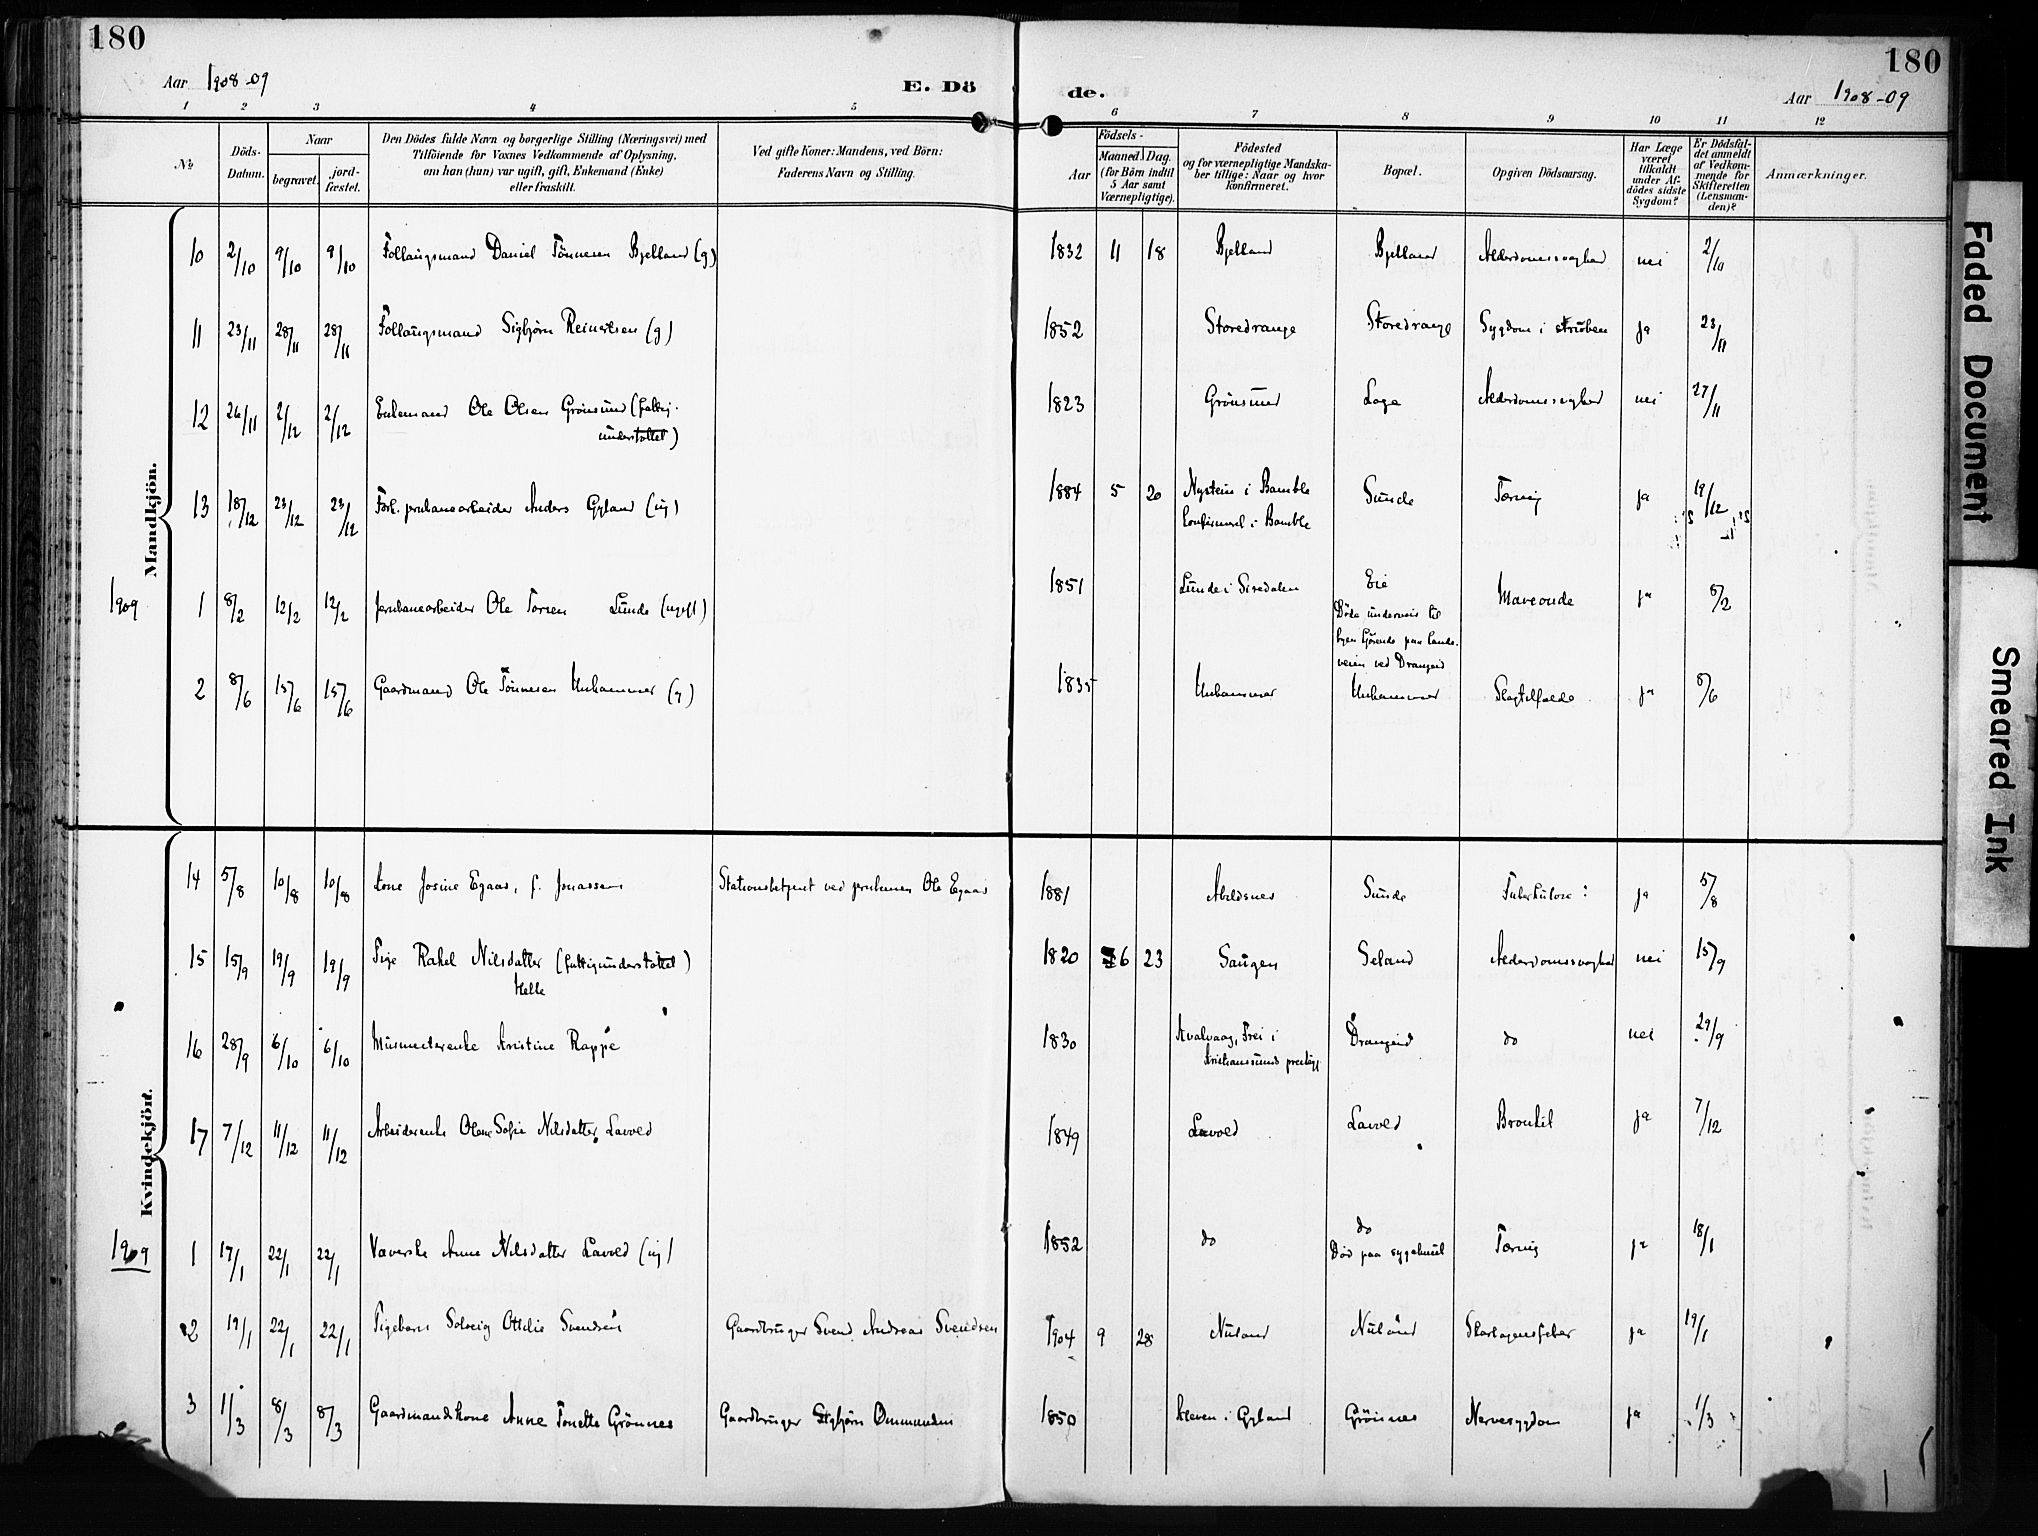 180
180
Aar 1908-09
E. Dö
de.
Aar 1908-09
1 2 3 4 5 6 7 8 9 10 11 12
№
Döds-
Datum.
Naar
begravet.
jord-
fæstet.
Den Dödes fulde Navn og borgerlige Stilling (Næringsvei) med
Tilföiende for Voxnes Vedkommende af Oplysning,
om han (hun) var ugift, gift, Enkemand (Enke)
eller fraskilt.
Ved gifte Koner: Mandens, ved Börn:
Faderens Navn og Stilling.
Födsels-
Aar
Maaned. Dag.
(for Börn indtil
5 Aar samt
Værnepligtige).
Födested
og for værnepligtige Mandska-
ber tillige: Naar og hvor
konfirmeret.
Bopæl.
Opgiven Dödsaarsag.
Har Læge
været
tilkaldt
under Af-
dödes sidste
Sygdom?
Er Dödsfal-
det anmeldt
af Vedkom-
mende for
Skifteretten
(Lensman-
den)?
Anmærkninger.
Mandkjön.
10 2/10 9/10 9/10 Follaugsmand Daniel Tönnesen Bjelland (g) 1832 11 18 Bjelland Bjelland Alderdomssvaghed nei 2/10
11 23/11 28/11 28/11 Follaugsmand Sigbjörn Reinertsen (g) 1852 Storedrange Storedrange Sygdom i struben ja 23/11
12 26/11 2/12 2/12 Enkemand Ole Olsen Grönsund (fattig-
understöttet) 1823 Grönsund Loga Alderdomssvaghed nei 27/11
13 18/12 23/12 23/12 Forh. jernbanearbeider Anders Gyland (ug) 1884 5 20 Nystein i Bamble
konfirmeret i Bamble Sunde Tæring ja 19/12
1909
1 8/2 12/2 12/2 Jernbanearbeider Ole Torsen Lunde (ugift) 1851 Lunde i Siredalen Eie
Döde underveis til
byen kjörende paa lande-
veien ved Drangeid Maveonde ja 8/2
2 8/6 15/6 15/6 Gaardmand Ole Tönnesen Urhammer (g) 1835 Urhammer Urhammer Slagtilfælde ja 8/6
Kvindekjön.
14 5/8 10/8 10/8 Kone Josine Egaas, f. Jonassen Stationsbetjent ved jernbanen Ole Egaas 1881 Abildsnes Sunde Tuberkulose ja 5/8
15 15/9 19/9 19/9 Pige Rakel Nilsdatter (fattigunderstöttet)
Helle 1820 6 23 Saugen Seland Alderdomssvaghed nei 15/9
16 28/9 6/10 6/10 Murmesterenke Kristine Rappe 1830 Kvalvaag, Frei i
Kristianssunds prestegj. Drangeid do nei 29/9
17 7/12 11/12 11/12 Arbeiderenke Olene Sofie Nilsdatter Lavold 1849 Lavold Lavold Bronkit ja 7/12
1909
1 17/1 22/1 22/1 Væverske Anne Nilsdatter Lavold (ug) 1852 do do
Död paa sygehuset Tæring ja 18/1
2 19/1 22/1 22/1 Pigebarn Solveig Ottilie Svendsen Gaardbruger Svend Andreas Svendsen 1904 9 28 Nuland Nuland Skarlagensfeber ja 19/1
3 1/3 8/3 8/3 Gaardmandskone Anne Tonette Grönnes Gaardbruger Sigbjörn Ommundsen 1850 Kleven i Gyland Grönnes Nervesygdom ja 1/3
Faded Document
Smeared Ink